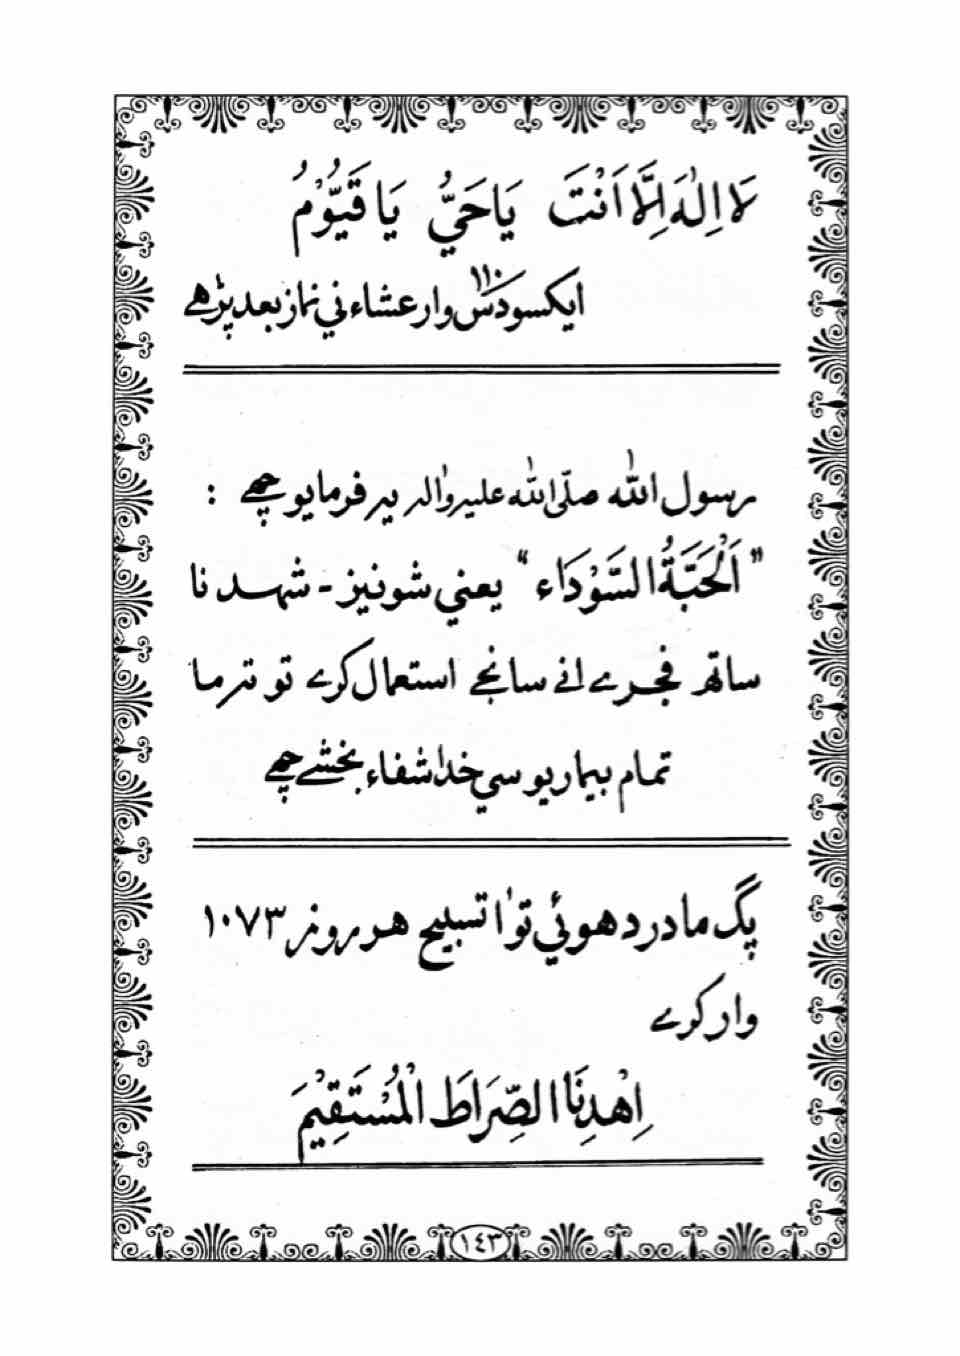 لَا اِلٰهَ اِلَّا اَنْتَ يَا حَيُّ يَا قَيُّوْمُ
ايكسودس ١١٠ وار عشاء ني نماز بعد پڑهے
رسول الله صلّى الله عليه واٰله يه فرمايو چھے :
"اَلْحَبَّةُ السَّوْدَاء" يعني شونيز - شهد نا
ساتھ فجرے انے سانجے استعمال كرے تو ته ما
تمام بيماريو سي خدا شفاء بخشے چھے
پگ ما درد هوئي تو اٰ تسبيح هر روز ١٠٧٣
وار كرے
اِهْدِنَا الصِّرَاطَ الْمُسْتَقِيْمَ
١٤٣